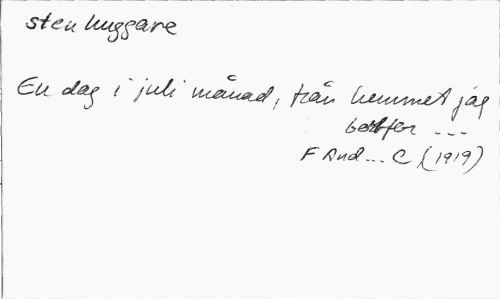 stenhuggare
En dag i juli månad, från hemmet jag
bortfor ...
F And... C (1919)